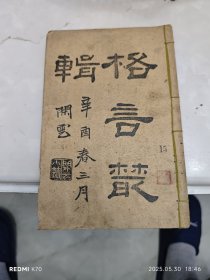 格言叢
輯
辛酉春三月
閑雲
15
REDMI K70
2025.05.30 18:46